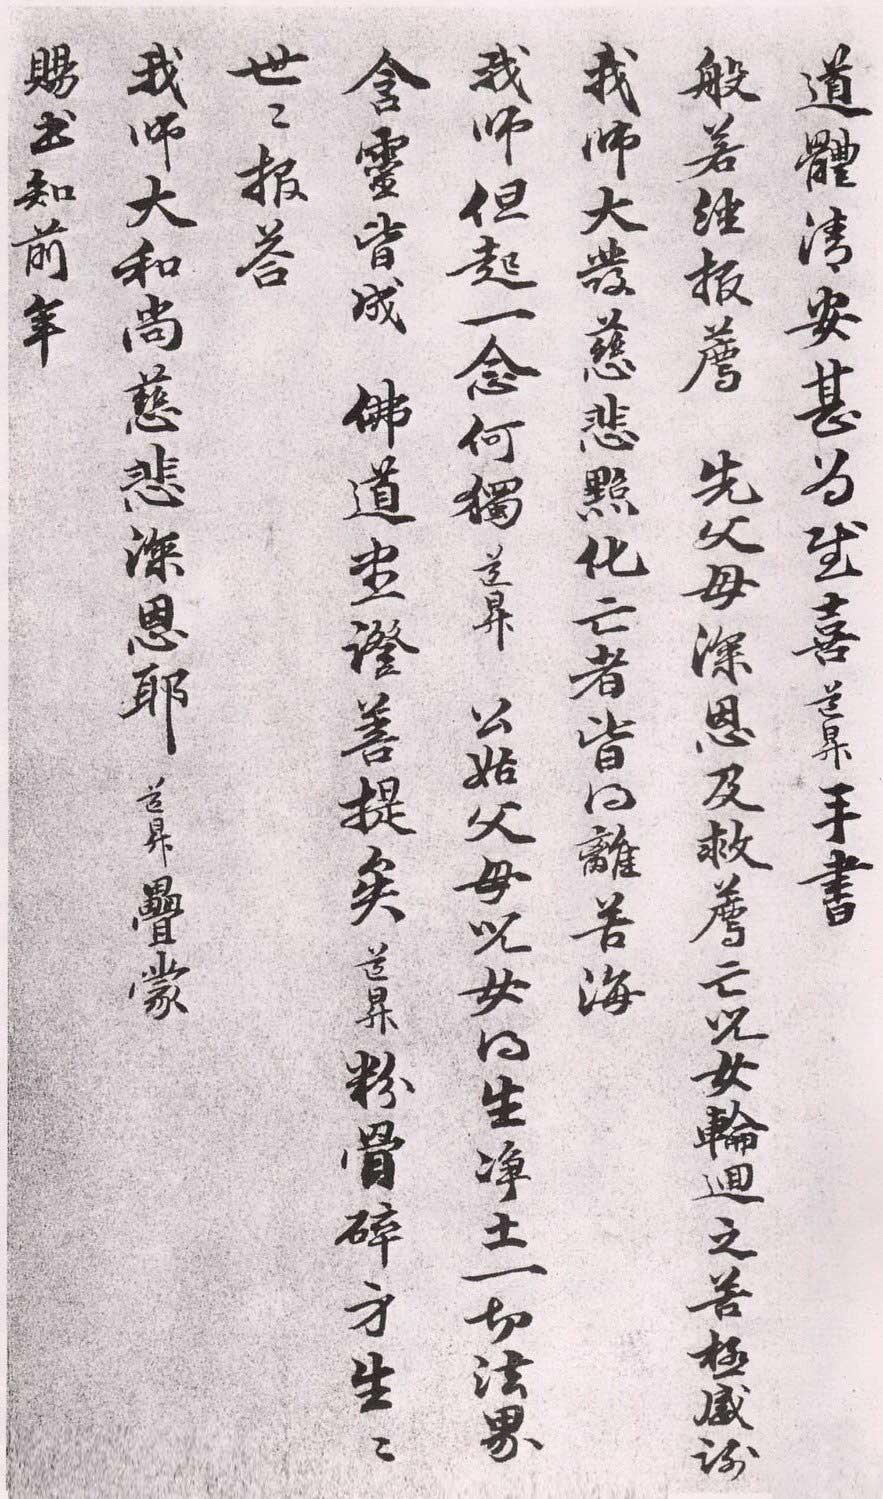 道體清安甚為感喜道昇手書
般若經報薦 先父母深恩及救薦亡兒女輪迴之苦極感謝
我師大發慈悲點化亡者皆得離苦海
我師但起一念何獨道昇 公姑父母兒女得生淨土一切法界
含靈皆成 佛道坐證菩提矣道昇粉骨碎身生〻
世〻報答
我師大和尚慈悲深恩耶道昇疊蒙
賜書知前年